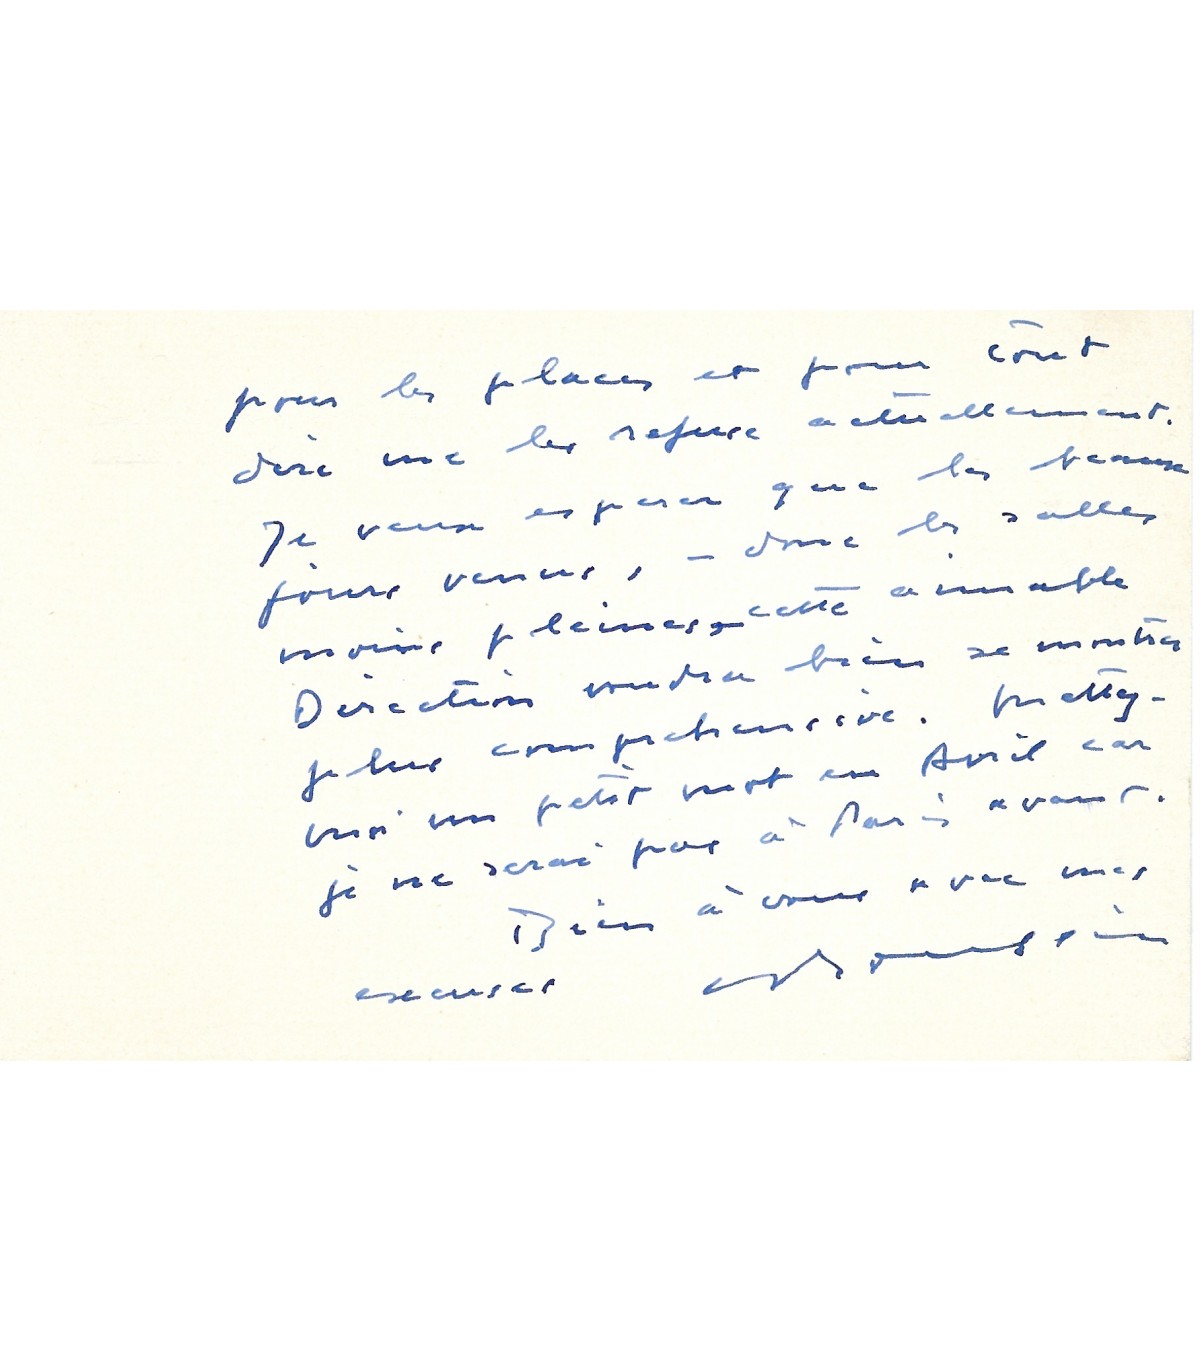 pour les places et pour tout
dire me les refuse actuellement.
Je veux esperer que les beaux
jours venus, - donc les salles
moins pleines, - cette aimable
Direction voudra bien se montrer
plus comprehensive. Mettez-
moi un petit mot en Avril car
je ne serai pas à Paris avant.
Bien à vous avec mes
excuses Roussin